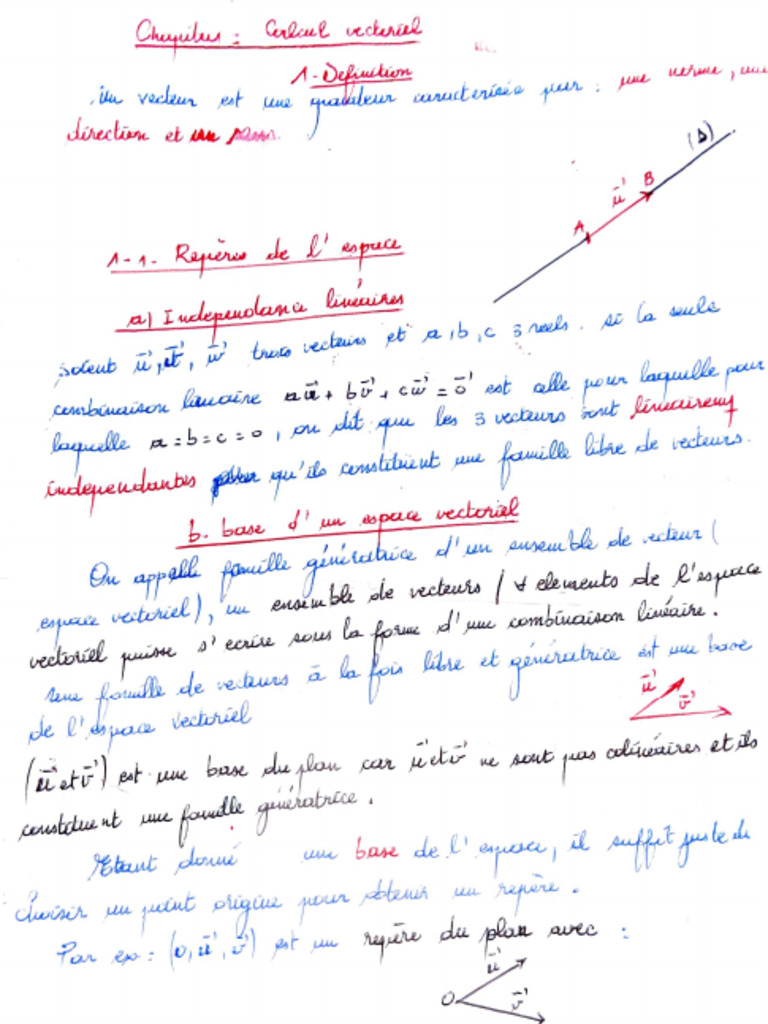 Chapitre : Calcul vectoriel
1 - Definition
Un vecteur est une grandeur caracterisée par : une norme, une
direction et un sens.
(Δ)
B
u⃗
A
1-1- Repères de l'espace
a) Independance linéaires
soient u⃗, v⃗, w⃗ trois vecteurs et a, b, c 3 reels. si la seule
combinaison lineaire au⃗ + bv⃗ + cw⃗ = o⃗ est celle pour laquelle pour
laquelle a = b = c = 0, on dit que les 3 vecteurs sont
independantes qu'ils constituent une famille libre de vecteurs.
b. base d'un espace vectoriel
On appelle famille génératrice d'un ensemble de vecteur (
espace vectoriel), un ensemble de vecteurs / ∀ elements de l'espace
vectoriel puisse s'ecrire sous la forme d'une combinaison linéaire.
une famille de vecteurs à la fois libre et génératrice est une base
de l'espace vectoriel
u⃗
v⃗
(u⃗ et v⃗) est une base du plan car u⃗ et v⃗ ne sont pas colinéaires et ils
constituent une famille génératrice.
Etant donné une base de l'espace, il suffit juste de
choisir un point origine pour obtenir un repère.
Par ex = (o, u⃗, v⃗) est un repère du plan avec :
u⃗
O
v⃗